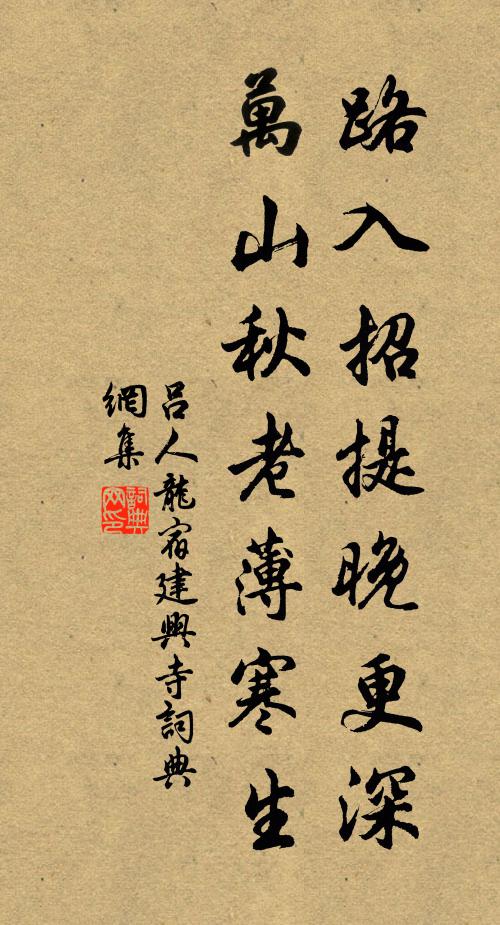 路入招提晚更深
萬山秋老薄寒生
呂人龍宿建興寺詞典
網集
詞典
网印